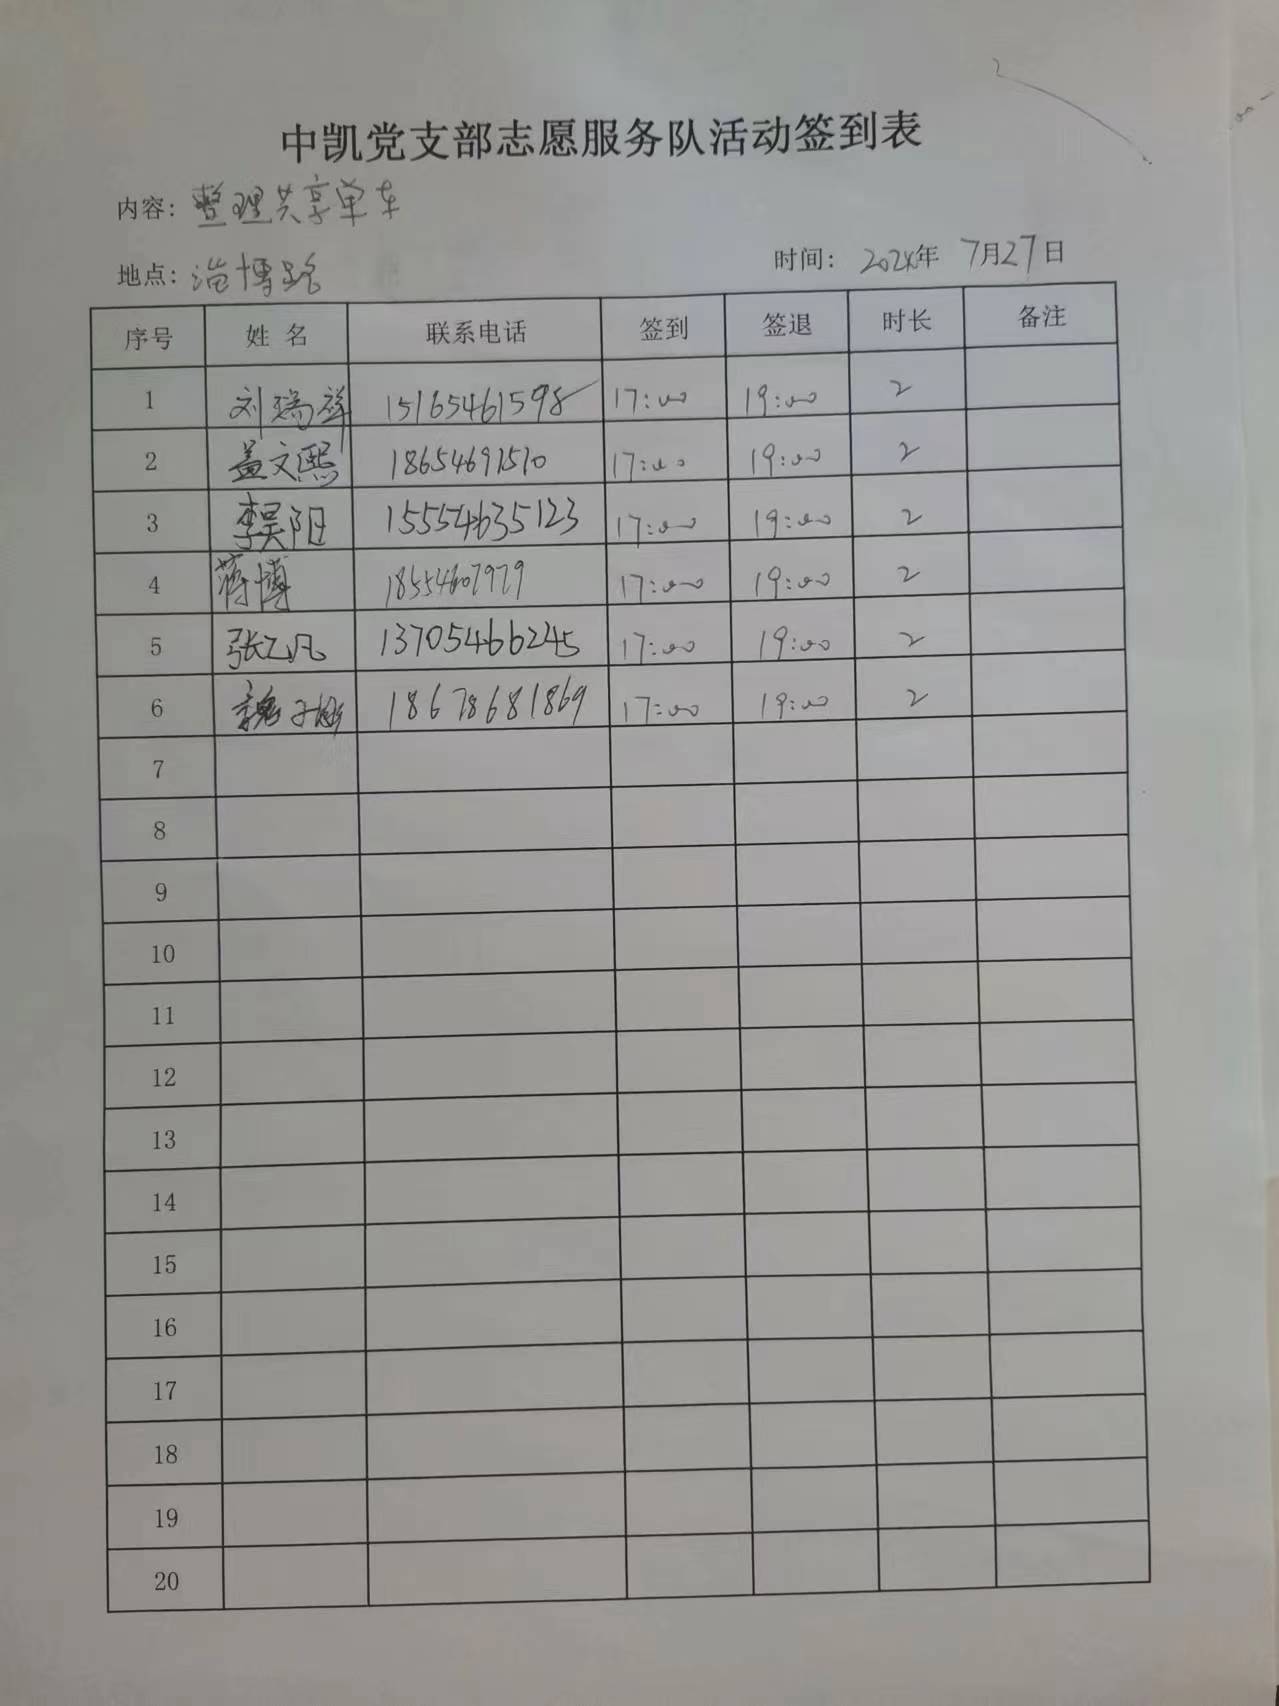 中凯党支部志愿服务队活动签到表
内容: 整理共享单车
地点: 淄博路 时间: 2024年 7月27日
序号 姓名 联系电话 签到 签退 时长 备注
1 刘瑞祥 15165461598 17:00 19:00 2
2 盖文熙 18654691510 17:00 19:00 2
3 李昊阳 15554635123 17:00 19:00 2
4 蒋博 18554607979 17:00 19:00 2
5 张乙凡 13705466245 17:00 19:00 2
6 魏子 18678681869 17:00 19:00 2
7
8
9
10
11
12
13
14
15
16
17
18
19
20